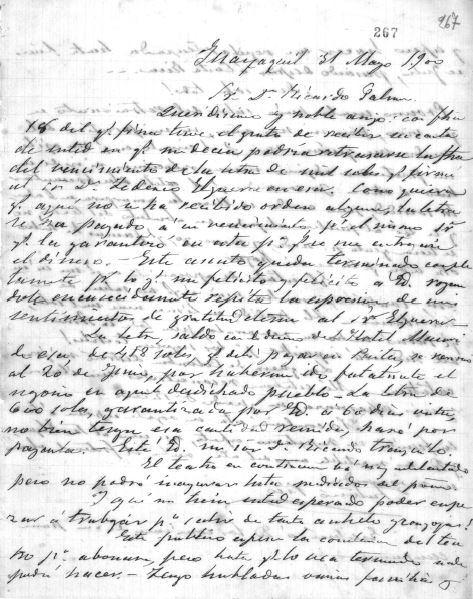 267
267
Guayaquil 31 Mayo 1900
Sr. D. Ricardo Palma
Queridísimo y noble amigo: con fha
18 del q. tuve el gusto de recibir su carta
de usted en q. me decía podría retrasarse la fha
del vencimiento de la letra de mil soles q. firmé
al sr. D. Federico Elguera en esa. Como quiera
q. aquí no se ha recibido orden alguna, la letra
se ha pagado á su vencimiento p. el mismo sr
q. la garantizó en esta p. q. se me entregara
el dinero. Este asunto queda terminado comple
tamente p. lo q. me felicito y felicito a Vd. rogan
dole encarecidamente repita la espresion de mis
sentimientos de gratitud eterna al sr. Elguera.
La letra, saldo en dinero del Hotel Maury
de esa, de 418 soles, q. debí pagar en Quito, se renovó
al 20 de Junio, por haberme ido fatalmente el
negocio en aquel desdichado pueblo. La letra de
600 soles, garantizada por Vd. a 60 dias vista,
no bien tenga esa cantidad reunida, haré por
pagarla. Esté Vd. mi sor D. Ricardo tranquilo.
El teatro en construcción vá muy adelantado
pero no podrá inaugurar hasta mediados del
Y qué no bien usted esperado poder empe
zar á trabajar p. salir de tanto anhelo y congojas!
Este público espera la conclusion del tea
tro p. abonarse, pero hasta q. lo vea terminado nada
podrá hacer. - Tengo habladas varias familias y